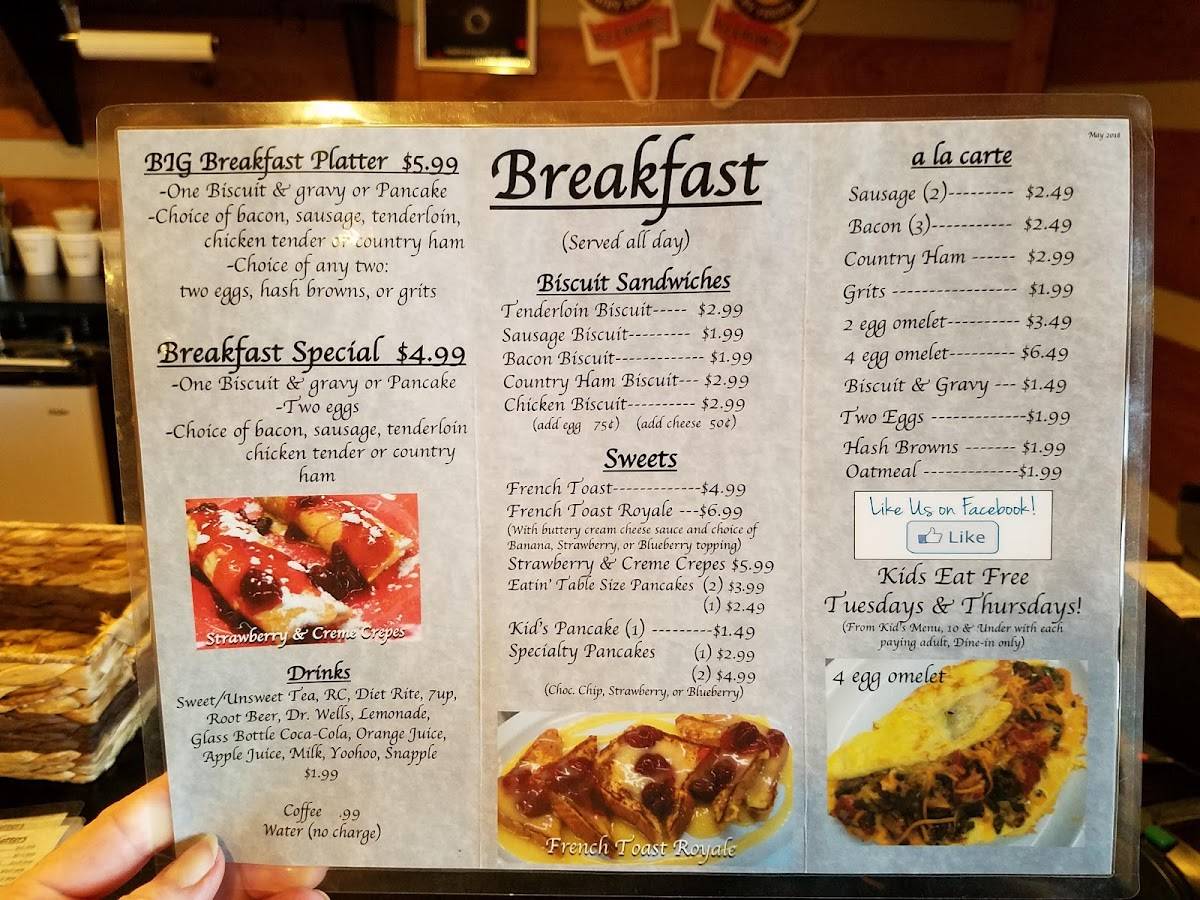 May 2018
BIG Breakfast Platter $5.99
-One Biscuit & gravy or Pancake
-Choice of bacon, sausage, tenderloin,
chicken tender or country ham
-Choice of any two:
two eggs, hash browns, or grits
Breakfast Special $4.99
-One Biscuit & gravy or Pancake
-Two eggs
-Choice of bacon, sausage, tenderloin
chicken tender or country
ham
Strawberry & Creme Crepes
Drinks
Sweet/Unsweet Tea, RC, Diet Rite, 7up,
Root Beer, Dr. Wells, Lemonade,
Glass Bottle Coca-Cola, Orange Juice,
Apple Juice, Milk, Yoohoo, Snapple
$1.99
Coffee .99
Water (no charge)
Breakfast
(Served all day)
Biscuit Sandwiches
Tenderloin Biscuit----- $2.99
Sausage Biscuit--------- $1.99
Bacon Biscuit------------- $1.99
Country Ham Biscuit--- $2.99
Chicken Biscuit---------- $2.99
(add egg 75¢) (add cheese 50¢)
Sweets
French Toast-------------$4.99
French Toast Royale ---$6.99
(With buttery cream cheese sauce and choice of
Banana, Strawberry, or Blueberry topping)
Strawberry & Creme Crepes $5.99
Eatin' Table Size Pancakes (2) $3.99
(1) $2.49
Kid's Pancake (1) ---------$1.49
Specialty Pancakes (1) $2.99
(2) $4.99
(Choc. Chip, Strawberry, or Blueberry)
French Toast Royale
a la carte
Sausage (2)--------- $2.49
Bacon (3)----------- $2.49
Country Ham ------ $2.99
Grits ----------------- $1.99
2 egg omelet---------- $3.49
4 egg omelet--------- $6.49
Biscuit & Gravy --- $1.49
Two Eggs -------------$1.99
Hash Browns ------- $1.99
Oatmeal -------------$1.99
Like Us on Facebook!
Like
Kids Eat Free
Tuesdays & Thursdays!
(From Kid's Menu, 10 & Under with each
paying adult, Dine-in only)
4 egg omelet